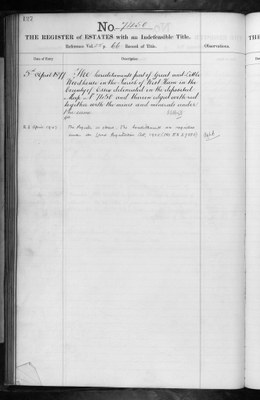 122
No. 7450
THE REGISTER of ESTATES with an Indefeasible Title.
Reference Vol. 66 Record of Title.
Observations.
Date of Entry
Description
5th April 1877 The hereditaments part of Great and Little
Woodhouse in the Parish of West Ham in the
County of Essex delineated in the deposited
Map No 7450 and thereon edged with red
together with the mines and minerals under
the same
April 1927 The Register is closed. The hereditaments are registered
under the Land Registration Act, 1925